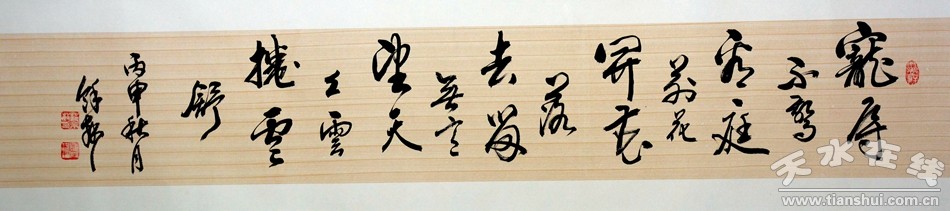 寵辱
不驚
看庭
前花
開花
落
去留
無意
望天
上雲
捲雲
舒
丙申秋月
天水在线
www.tianshui.com.cn